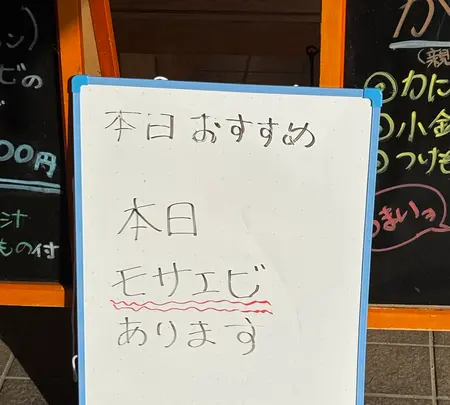 本日おすすめ
本日
モサエビ
あります
ン)
ビの
00円
汁
もの付
か
(親
かに
小金
つけも
まいヨ